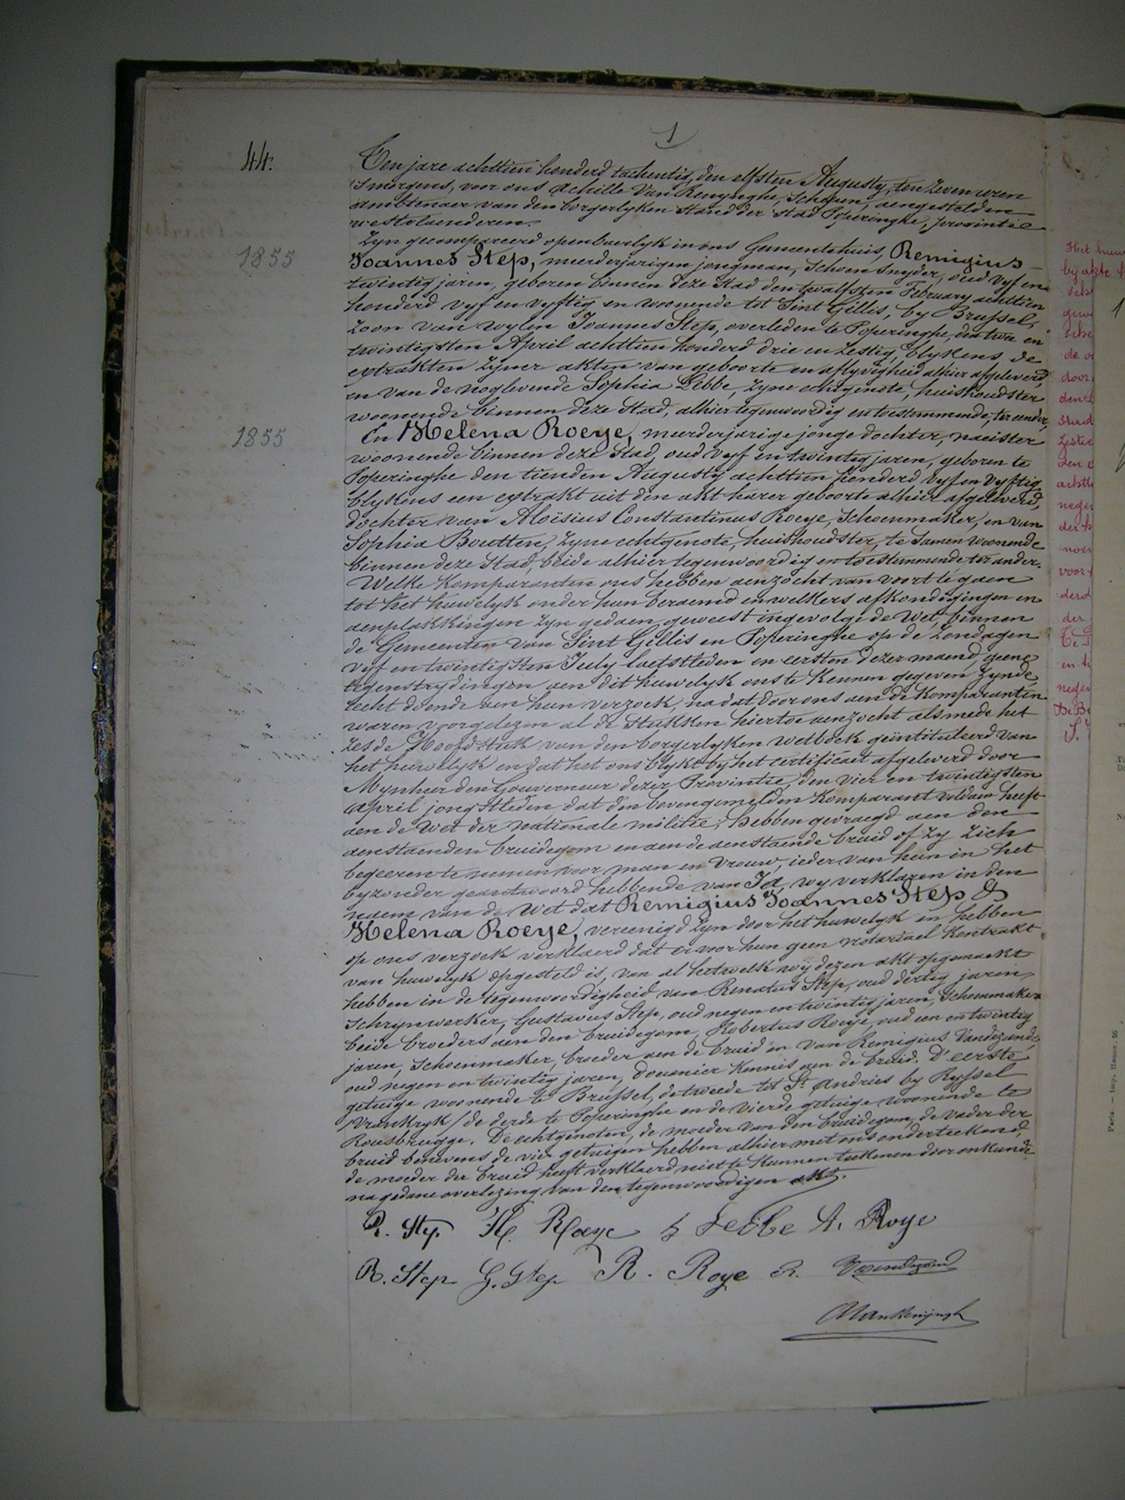 1
44.
Ten jare achttien honderd tachentig, den elfsten Augusty, ten zeven uren
smorgens, voor ons Achille Van Renynghe, Schepen, aengestelden
ambtenaer van den borgerlyken Stand der Stad Poperinghe, provintie
westvlaenderen.
Zyn gecompareerd openbaerlyk in ons Gemeentehuis, Remigius
1855
Joannes Step, meerderjarigen jongman, Schoen Snyder, oud vyf en
twintig jaren, geboren binnen deze Stad den twaelfsten February achttien
honderd vyf en vyftig en wonende tot Sint Gillis, by Brussel,
zoon van wylen Joannes Step, overleden te Poperinghe, den twee en
twintigsten April achttien honderd drie en zestig, blykens de
extrakten zyner akten van geboorte en aflyvigheid alhier afgeleverd,
en van de noglevende Sophia Lebbe, zyne echtgenote, huishoudster
woonende binnen deze Stad, alhier tegenwoordig en toestemmende, ter eender,
1855
En Melena Roeye, meerderjarige jonge dochter, naeister
woonende binnen deze Stad, oud vyf en twintig jaren, geboren te
Poperinghe den tienden Augusty achttien honderd vyf en vyftig,
blykens een extrakt uit den akt harer geboorte alhier afgeleverd,
dochter van Aloïsius Constantinus Roeye, Schoenmaker, en van
Sophia Boutten, zyne echtgenote, huishoudster, te samen woonende
binnen deze Stad, beide alhier tegenwoordig en toestemmende ter ander.
Welke komparanten ons hebben aenzocht van voort te gaen
tot het huwelyk onder hun beraemd en welkers afkondigingen en
aenplakkingen zyn gedaen geweest ingevolge de Wet, binnen
de Gemeenten van Sint Gillis en Poperinghe op de Zondagen
vyf en twintigsten July laetstleden en eersten dezer maend, geene
tegenstrydingen aen dit huwelyk ons te kennen gegeven zynde,
recht doende aen hun verzoek, na dat door ons aen de komparanten
waren voorgelezen al de Stukken hiertoe aenzocht alsmede het
zesde Hoofdstuk van den borgerlyken wetboek geintituleerd van
het huwelyk en dat het ons blykt by het certificaet afgeleverd door
Mynheer den Gouverneur dezer Provintie, den vier en twintigsten
April jongstleden dat den bovengemelden komparant voldaen heeft
aen de Wet der nationale militie; hebben gevraegd aen den
aenstaenden bruidegom en aen de aenstaende bruid of zy zich
begeeren te nemen voor man en vrouw, ieder van hun in het
byzonder geantwoord hebbende van Ja, wy verklaren in den
naem van de Wet dat Remigius Joannes Step &
Melena Roeye, vereenigd zyn door het huwelyk en hebben
op ons verzoek verklaerd dat er voor hun geen notariael kontrakt
van huwelyk opgesteld is, van al hetwelk wy dezen akt opgemaekt
hebben in de tegenwoordigheid van Renatus Step, oud dertig jaren,
Schrynwerker, Gustavus Step, oud negen en twintig jaren, Schoenmaker
beide broeders aen den bruidegom, Robertus Roeye, oud een en twintig
jaren, Schoenmaker, broeder aen de bruid en van Remigius Vandezande,
oud negen en twintig jaren, douanier kennis aen de bruid. D'eerste
getuige woonende te Brussel, de tweede tot St Andries by Ryssel
/Vrankryk/ de derde te Poperinghe en de vierde getuige woonende te
Rousbrugge. De echtgenoten, de moeder van den bruidegom, de vader der
bruid benevens de vier getuigen hebben alhier met ons onderteekend,
de moeder der bruid heeft verklaerd niet te kunnen teekenen door onkunde
na gedane overlezing van den tegenwoordigen akt.
R. Step H. Roeye S Lebbe A. Roye
R. Step G. Step R. Roye R. Vandezande
AVanRenynghe